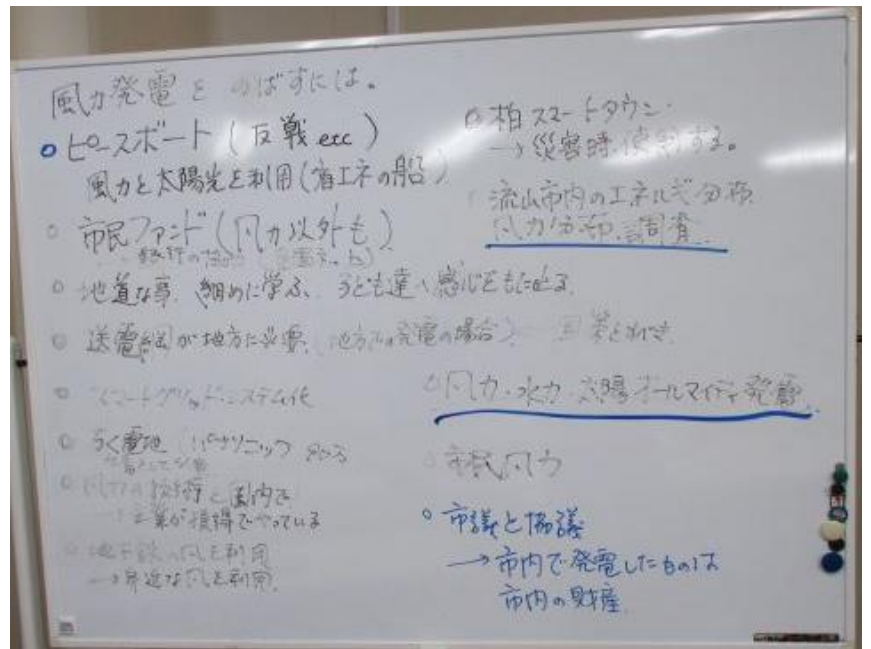 風力発電をのばすには。
○ピースボート(反戦etc)
風力と太陽光を利用(省エネの船)
○市民ファンド(風力以外も)
銀行の
○地道な事、細めに学ぶ、子ども達へ感心をもたせる
○送電網が地方に必要(地方での発電の場合)
○スマートグリッドシステム化
○ちく電池(パナソニック
○風力の技術 国内で
→企業が獲得でやっている
○地下鉄の風を利用
→身近な風を利用。
○柏スマートタウン
→災害時使用する。
流山市内のエネルギ分布
風力分布調査
○風力・水力・太陽オールマイティ発電
○市民風力
○市議と協議
→市内で発電したものは
市内の財産